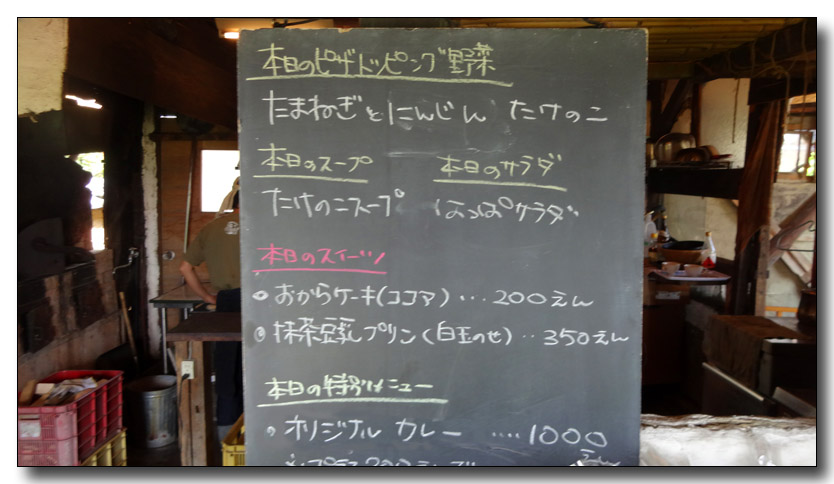 本日のピザトッピング野菜
たまねぎとにんじん たけのこ
本日のスープ 本日のサラダ
たけのこスープ はっぱサラダ
本日のスイーツ
おからケーキ(ココア)…200えん
抹茶豆乳プリン(白玉のせ)‥350えん
本日の特別メニュー
オリジナル カレー ‥‥1000
えん
プラス200